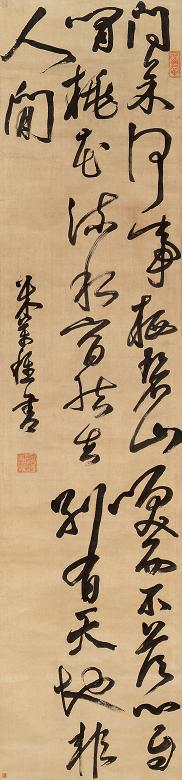 問余何事栖碧山咲而不荅心自
閒桃花流水窅然去別有天地非
人間
米萬鍾書